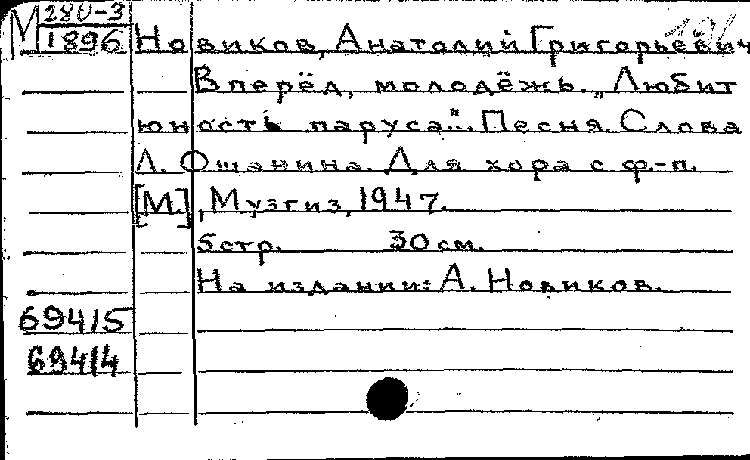 М 280-3
1896
Новиков, Анатолий Григорьевич
Вперёд, молодёжь. „Любит
юность паруса"... Песня. Слова
Л. Ошанина. Для хора с ф.-п.
[М.], Музгиз, 1947.
5 стр. 30 см.
На издании: А. Новиков.
69415
69414